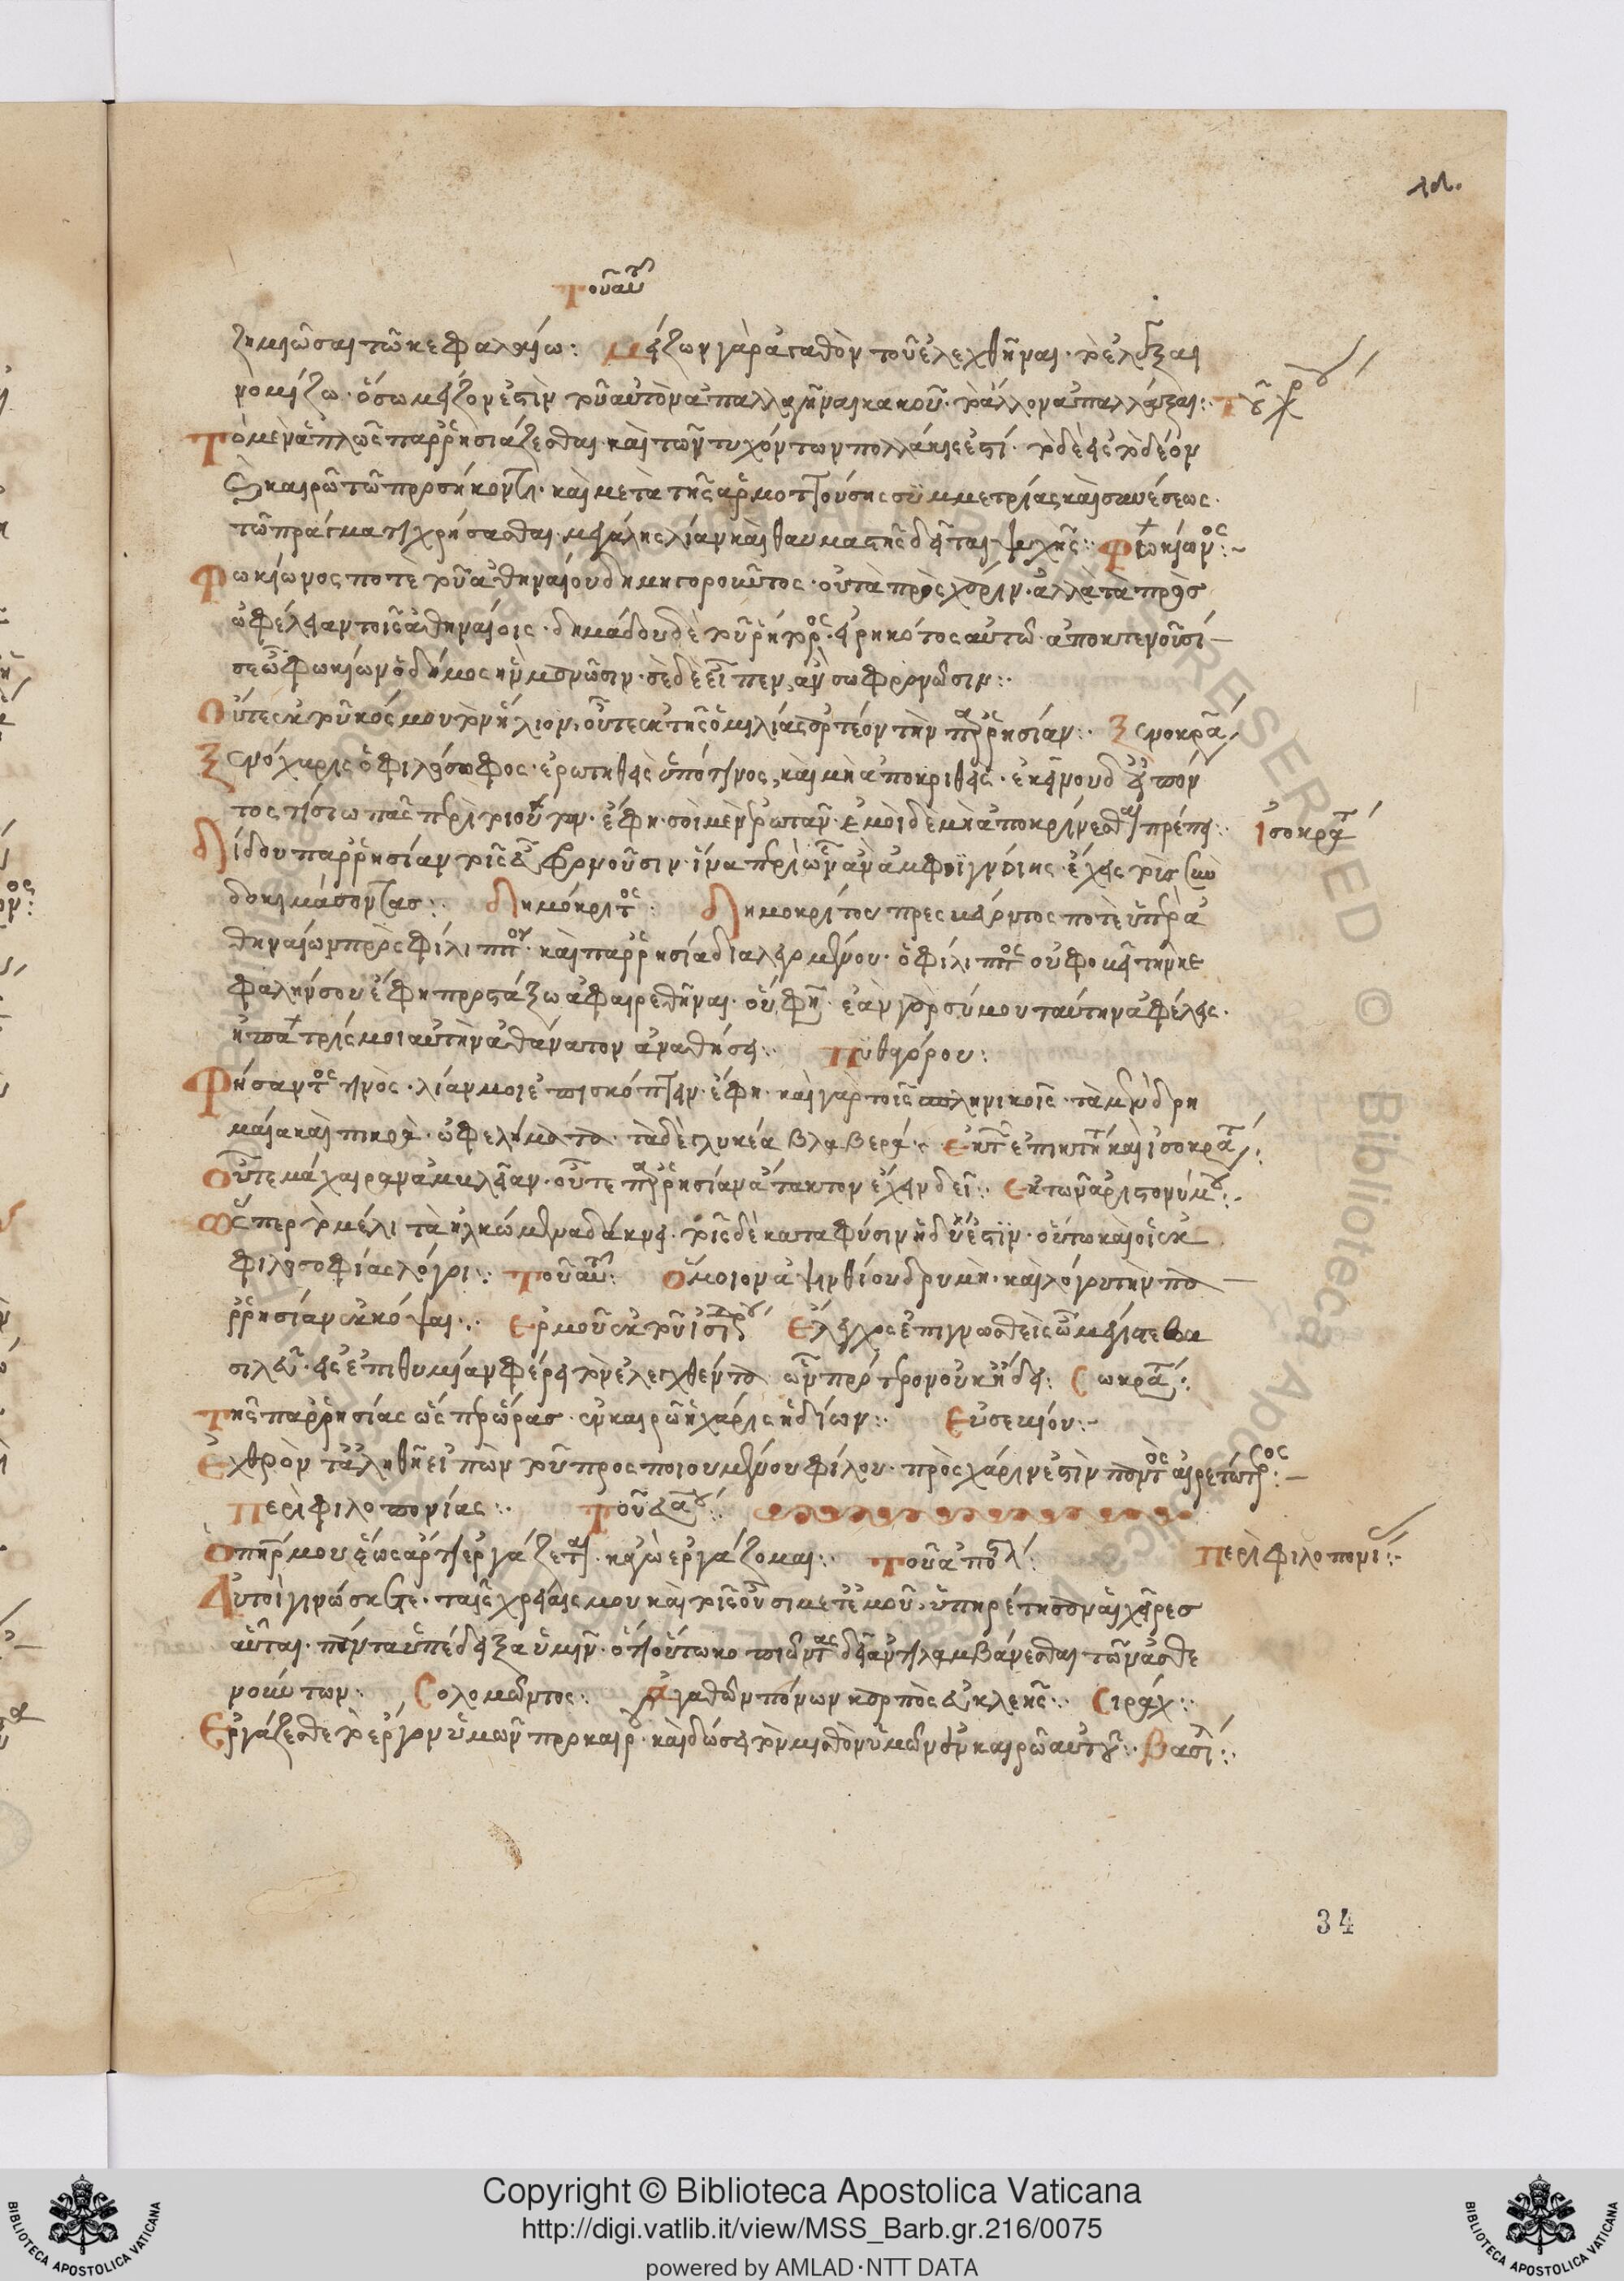 λδ.
Τοῦ αὐτ
ζημιῶσαι τῶ κεφαλαίω: Μεῖζον γὰρ ἀγαθὸν τοῦ ἐλεχθῆναι· τὸ ἐλέγξαι
νομίζω· ὅσω μεῖζον ἐστὶν τοῦ αὐτὸν ἀπαλλαγῆναι κακοῦ· τὸ ἄλλον ἀπαλλάξαι:
Τὸ μὲν ἁπλῶς παρρησιάζεσθαι καὶ τῶν τυχόντων πολλάκις ἐστί· τὸ δὲ εἰς τὸ δέον
ἐν καιρῶ τῶ προσήκοντι· καὶ μετὰ τῆς ἁρμοττούσης συμμετρίας καὶ συνέσεως·
τῶ πράγματι χρήσασθαι· μεγάλης λίαν καὶ θαυμαστῆς δεῖται ψυχῆς: Φωκίωνος:~
Φωκίωνος ποτὲ τοῦ ἀθηναίου δημηγοροῦντος· οὐ τὰ πρὸς χάριν· ἀλλὰ τὰ πρὸς
ὠφέλειαν τοῖς ἀθηναίοις· δημάδου δὲ τοῦ ῥήτορος· εἰρηκότος αὐτῶ· ἀποκτενοῦσί
σε ὦ φωκίων ὁ δῆμος ἢν μανῶσιν· σὲ δὲ εἶπεν, ἂν σωφρονῶσιν:
Οὔτε ἐκ τοῦ κόσμου τὸν ἥλιον, οὔτε ἐκ τῆς ὁμιλίας ἀρτέον τὴν παρρησίαν: Ξενοκρά
Ξενόχαρις ὁ φιλόσοφος· ἐρωτηθεὶς ὑπό τινος, καὶ μὴ ἀποκριθεὶς· ἐκείνου δ' εἰπόν
τος τί σιωπᾶς περὶ τούτων· ἔφη· σοὶ μὲν ἐρωτᾶν· ἐμοὶ δὲ μὴ ἀποκρίνεσθαι πρέπει: ἰσοκρατ
Δίδου παρρησίαν τοῖς εὖ φρονοῦσιν· ἵνα περὶ ὧν ἂν ἀμφιγνοῆς· ἔχεις τοὺς συν
δοκιμάσοντας: Δημόκριτος: Δημοκρίτου πρεσβεύοντος ποτὲ ὑπὲρ ἀ
θηναίων πρὸς φίλιππον· καὶ παρρησία διαλεγομένου· ὁ φίλιππος οὐ φοβῆ τὴν κε
φαλήν σου ἔφη προστάξω ἀφαιρεθῆναι· οὔ φη· ἐὰν γὰρ σύ μου ταύτην ἀφέλεις·
ἡ πατρίς μοι αὐτὴν ἀθάνατον ἀναθήσει: Πυθαγόρου:
Φήσαντος τινὸς· λίαν μοι ἐπισκόπτειν· ἔφη· καὶ γὰρ τοῖς σπληνικοῖς· τὰ μὲν δρι
μέα καὶ πικρὰ· ὠφέλιμα· τὰ δὲ γλυκέα βλαβερά: Ἐκ τ ἐπικτ καὶ ἰσοκρατ:
Οὔτε μάχαιραν ἀμβλεῖαν· οὔτε παρρησίαν ἄτακτον ἔχειν δεῖ: Ἐκ τῶν ἀριστονύμου:
Ὥσπερ τὸ μέλι τὰ ἡλκωμένα δάκνει· τοῖς δὲ κατα φύσιν ἡδύ ἐστὶν· οὕτω καὶ οἱ ἐκ
φιλοσοφίας λόγοι: Τοῦ αὐτ: Ὅμοιον ἀψινθίου δριμὺ· καὶ λόγου τὴν πα
ρρησίαν ἐκκόψαι: Ἑρμοῦ ἐκ τοῦ Ἔλεγχος ἐπιγνωσθεὶς ὦ μέγιστε βα
σιλεῦ· εἰς ἐπιθυμίαν φέρει τὸν ἐλεγχθέντα ὧν πρότερον οὐκ ᾔδει: Σωκράτ:
Τῆς παρρησίας ὡς περ ὥρας· ἐν καιρῶ ἡ χάρις ἡδίων: Εὐσεβίου:~
Ἐχθρὸν τἀληθῆ εἰπὼν τοῦ προσποιουμένου φίλου· πρὸς χάριν ἐστὶν παντὸς αἱρετώτερος:
Περὶ φιλοπονίας: Τοῦ εὐα:
Ὁ πατήρ μου ἕως ἄρτι ἐργάζεται· καγὼ ἐργάζομαι: Τοῦ ἀποστόλ: Περὶ φιλοπονί:~
Αὐτοὶ γινώσκετε· ταῖς χρείαις μου καὶ τοῖς οὖσι μετ' ἐμοῦ, ὑπηρέτησαν αἱ χεῖρες
αὗται· πάντα ὑπέδειξα ὑμῖν· ὅτι οὕτω κοπιῶντας δεῖ ἀντιλαμβάνεσθαι τῶν ἀσθε
νούντων: Σολομῶντος: Ἀγαθῶν πόνων καρπὸς εὐκλεής: Σιράχ:
Ἐργάζεσθε τὸ ἔργον ὑμῶν προ καιροῦ· καὶ δώσει τὸν μισθὸν ὑμῶν ἐν καιρῶ αὐτοῦ: Βασιλ:
34
Copyright © Biblioteca Apostolica Vaticana
http://digi.vatlib.it/view/MSS_Barb.gr.216/0075
powered by AMLAD·NTT DATA
BIBLIOTECA APOSTOLICA VATICANA
BIBLIOTECA APOSTOLICA VATICANA